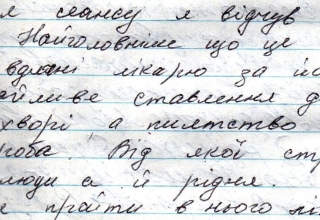 я сеансу я відчув
Найголовніше що це
вдячні лікарю за йо
айливе ставлення д
хворі, а пияцтво
роба. Від якої стр
люди а й рідня.
е пройти в нього лі